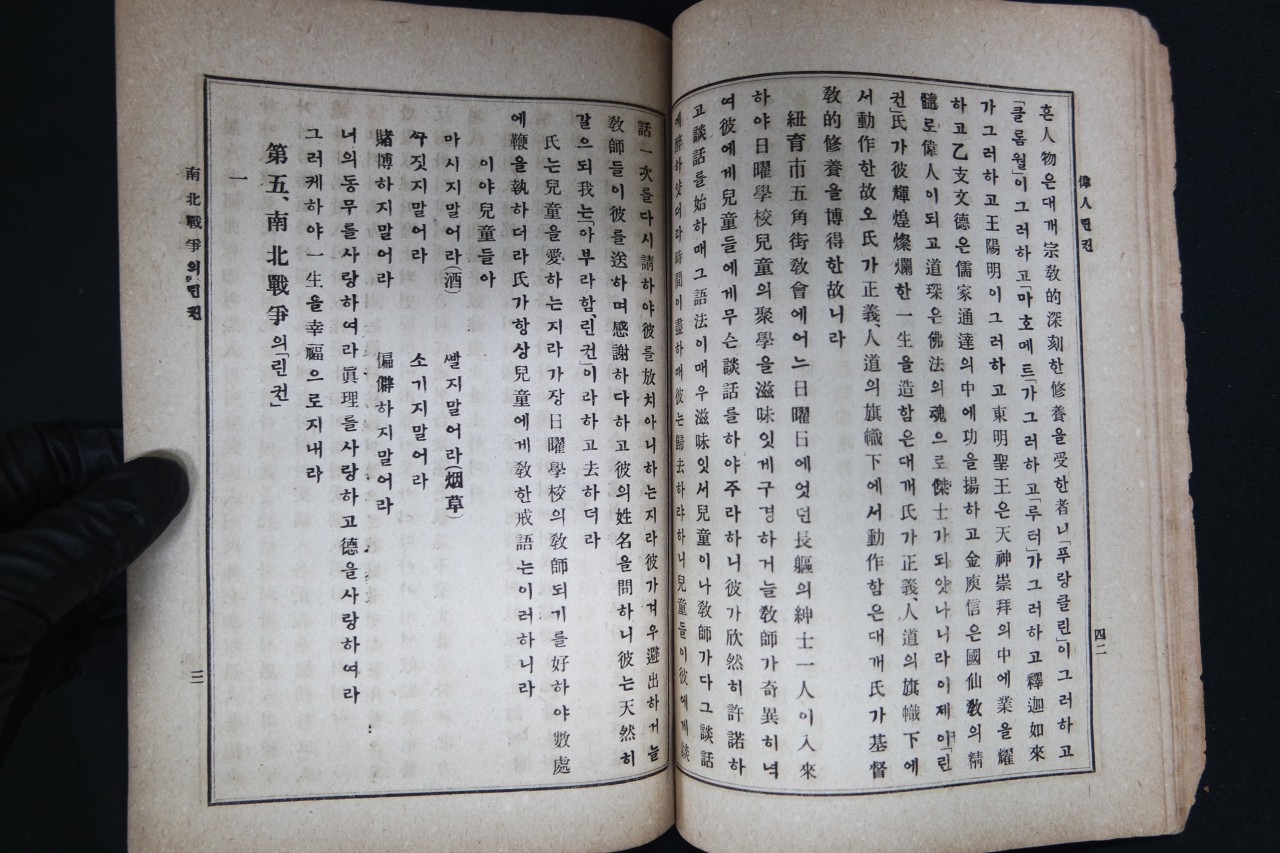 偉人린컨
四二
흔人物은대개宗敎的深刻한修養을受한者니「푸랑클린」이그러하고
「클롬웰」이그러하고「마호메트」가그러하고「루터」가그러하고釋迦如來
가그러하고王陽明이그러하고東明聖王은天神崇拜의中에業을耀
하고乙支文德은儒家通達의中에功을揚하고金庾信은國仙敎의精
髓로偉人이되고道琛은佛法의魂으로傑士가되앗나니라이제이「린
컨」氏가彼輝煌燦爛한一生을造함은대개氏가正義、人道의旗幟下에
서動作한故오氏가正義、人道의旗幟下에서動作함은대개氏가基督
敎的修養을博得한故니라
紐育市五角街敎會에어느日曜日에엇던長軀의紳士一人이入來
하야日曜學校兒童의聚學을滋味잇게구경하거늘敎師가奇異히녁
여彼에게兒童들에게무슨談話를하야주라하니彼가欣然히許諾하
고談話를始하매그語法이매우滋味잇서兒童이나敎師가다그談話
에醉하얏더라時間이盡하매彼는歸去하랴하니兒童들이彼에게談
話一次를다시請하야彼를放치아니하는지라彼가겨우避出하거늘
敎師들이彼를送하며感謝하다하고彼의姓名을問하니彼는天然히
갈으되我는「아부라함、린컨」이라하고去하더라
氏는兒童을愛하는지라가장日曜學校의敎師되기를好하야數處
에鞭을執하더라氏가항상兒童에게敎한戒語는이러하니라
이야兒童들아
마시지말어라(酒) 쌜지말어라(烟草)
쑤짓지말어라 소기지말어라
賭博하지말어라 偏僻하지말어라
너의동무를사랑하여라眞理를사랑하고德을사랑하여라
그러케하야一生을幸福으로지내라
第五、南北戰爭의「린컨」
一
南北戰爭의린컨
三